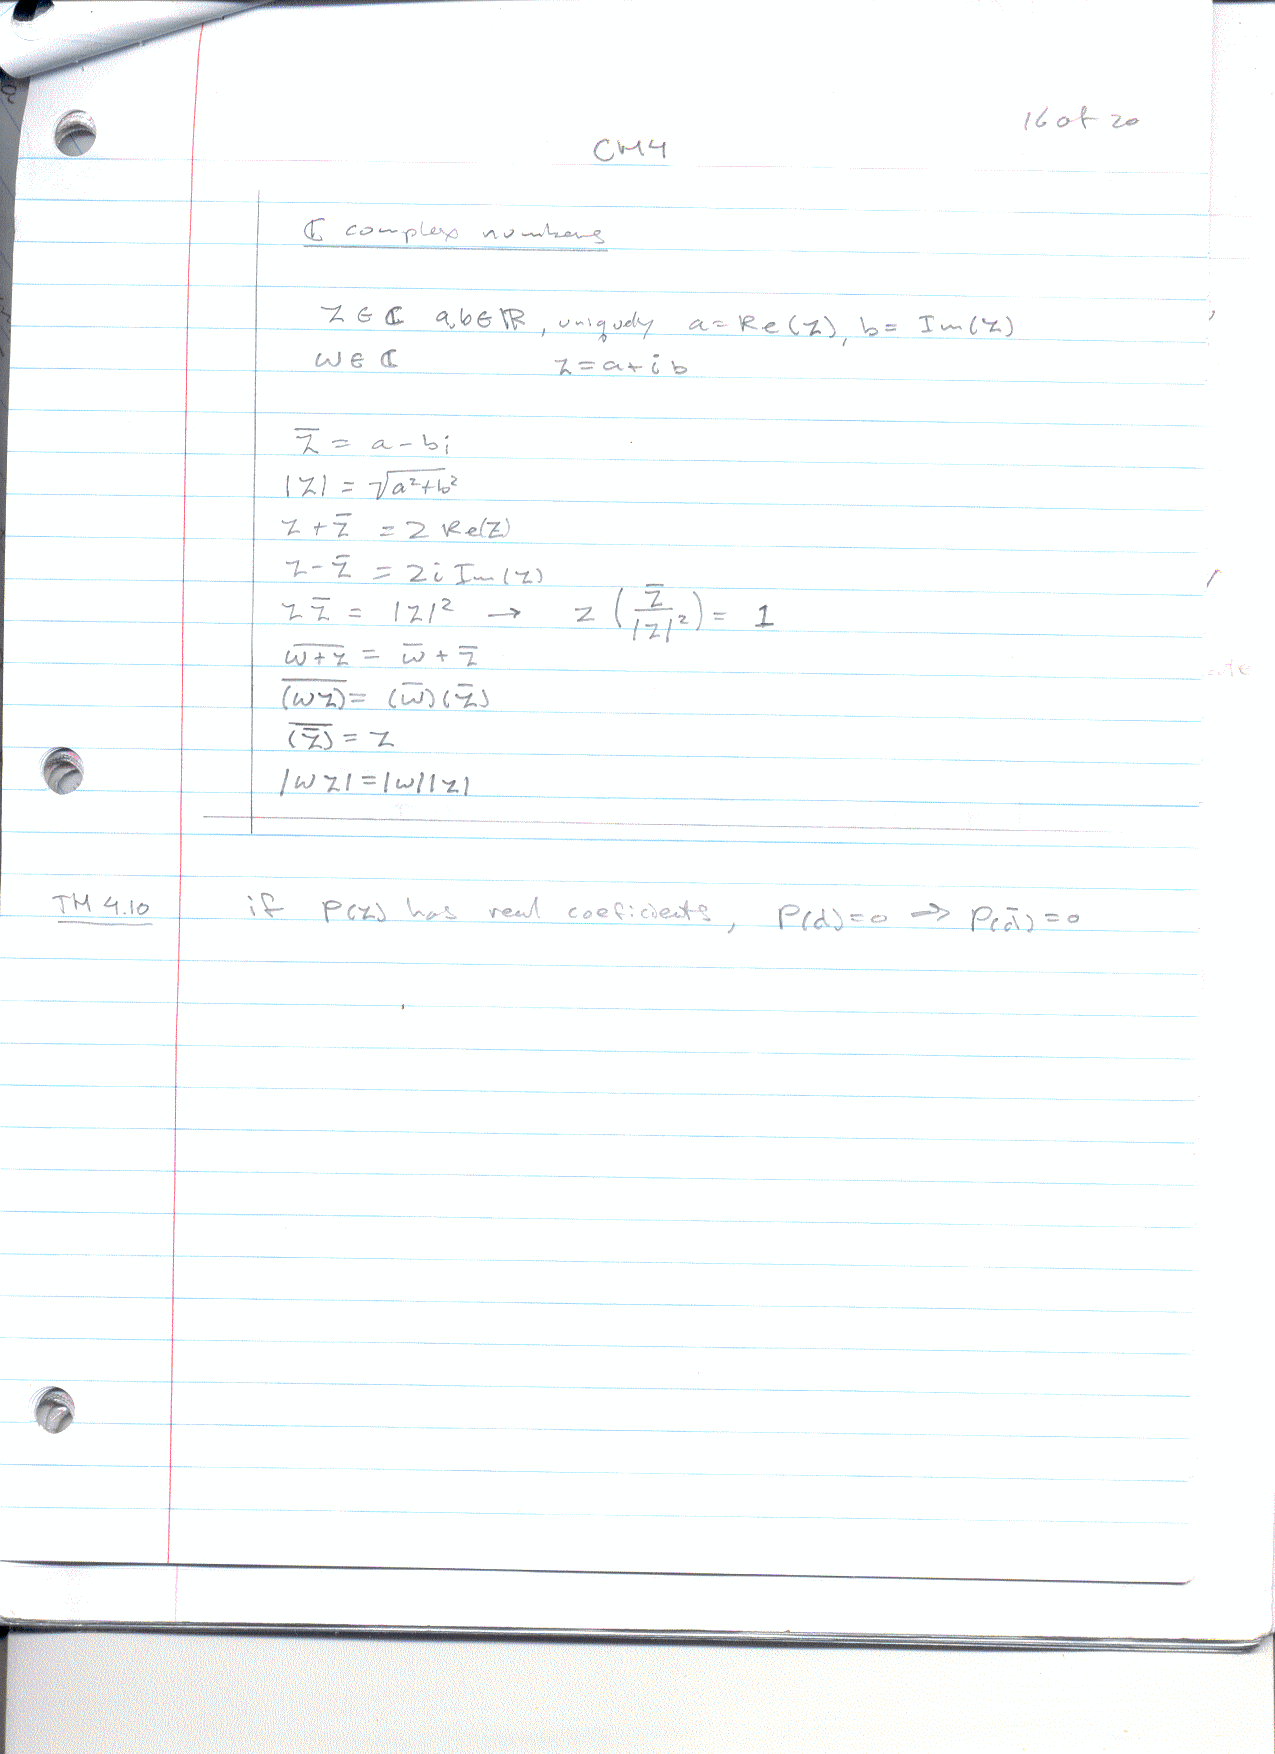 16 of 20
CH4
ℂ complex numbers
z ∈ ℂ a,b ∈ ℝ, uniquely a = Re(z), b = Im(z)
w ∈ ℂ z = a + i b
z̅ = a - bi
|z| = √(a²+b²)
z + z̅ = 2 Re(z)
z - z̅ = 2i Im(z)
z z̅ = |z|² → z (z̅/|z|²) = 1
\overline{w+z} = w̅ + z̅
\overline{(wz)} = (w̅)(z̅)
\overline{(z̅)} = z
|wz| = |w||z|
TM 4.10 if P(z) has real coeficients, P(d)=0 ⇒ P(d̅)=0